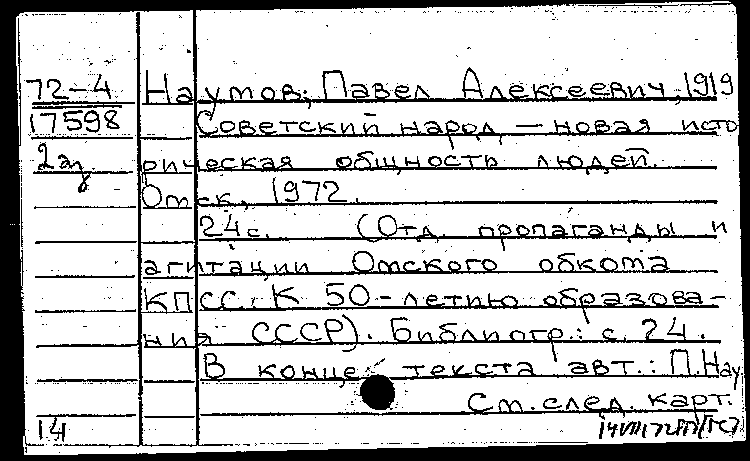 72-4 Наумов, Павел Алексеевич, 1919
17598 Советский народ, — новая исто
2 рическая общность людей.
Омск, 1972.
24с. (Отд. пропаганды и
агитации Омского обкома
КПСС. К 50-летию образова-
ния СССР). Библиогр.: с. 24.
В конце текста авт.: П.Нау
См. след. карт.
14